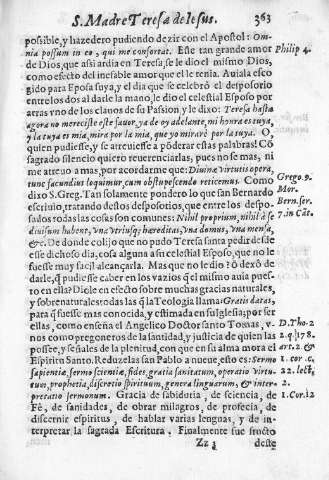 S. Madre Teresa de Iesus. 363
possible, y hazedero pudiendo dezir con el Apostol: Omnia
possum in eo, qui me confortat. Este tan grande amor Philip 4.
de Dios, que assi ardia en Teresa, se le dio el mismo Dios,
como efecto del inefable amor que el le tenia. Auiala escogido
para Esposa suya, y el dia que se celebrò el desposorio
entre los dos al darle la mano, le dio el celestial Esposo por
arras vno de los clauos de su Passion y le dixo: Teresa hasta
agora no mereciste este fauor, ya de oy adelante, mi honra es tuya,
y la tuya es mia, mira por la mia, que yo mirarè por la tuya. O,
quien pudiesse, y se atreuiesse a põderar estas palabras! Cõ
sagrado silencio quiero reuerenciarlas, pues no se mas, ni
me atreuo a mas, por acordarme que: Divina virtutis opera,
tunc facundius loquimur, cum obstupescendo reticemus. Como Grego. 9.
dixo S. Greg. Tan solamente pondero lo que san Bernardo Mor.
escriuio, tratando destos desposorios, que entre los desposados Bern. ser.
todas las cosas son comunes: Nihil proprium, nihil à se 7. in Cãt.
diuisum habent, vna vtriusq; hæreditas, vna domus, vna mensa,
&c. De donde colijo que no pudo Teresa santa pedir desde
esse dichoso dia, cosa alguna a su celestial Esposo, que no le
fuesse muy facil alcançarla. Mas que no le dio? ò dexò de
darle, q̃ pudiesse caber en los vazios q̃ el mismo auia puesto
en ella? Diole en efecto sobre muchas gracias naturales,
y sobrenaturales todas las q̃ la Teologia llama: Gratis datas,
para q̃ fuesse mas conocida, y estimada en su Iglesia; por ser
ellas, como enseña el Angelico Doctor santo Tomas, vnos D. Tho. 2
como pregoneros de la santidad, y justicia de quien las 2. q. 178.
possee, y señales de la plenitud, con que en su alma mora el art. 2 &
Espiritu Santo. Reduzelas san Pablo a nueue, esto es: Sermo 1. cor. c.
sapientiæ, sermo scientiæ, fides, gratia sanitatum, operatio virtutum, 22. lect.
prophetia, discretio spirituum, genera linguarum, & interpretatio 2.
sermonum. Gracia de sabiduria, de sciencia, de 1. Cor. 12
Fè, de sanidades, de obrar milagros, de profecia, de
discernir espiritus, de hablar varias lenguas, y de interpretar
la sagrada Escritura. Finalmente fue fructo
Zz 3 deste